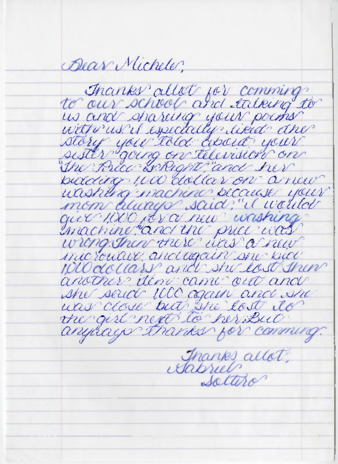 Dear Michele,
Thanks allot for comming
to our school and talking to
us and sharing your poems
with us. I especially liked the
story you told about your
sister going on television on
"The Price is Right" and her
bidding 1,000 dollar on a new
washing machine because your
mom always said: "I would
give 1,000 for a new washing
machine" and the price was
wrong. Then there was a new
microwave and again she bid
1000 dollars and she lost. Then
another item came out and
she said 1000 again and she
was close but she lost to
the girl next to her. But
anyways thanks for comming.
Thanks allot,
Gabriel
Soltero